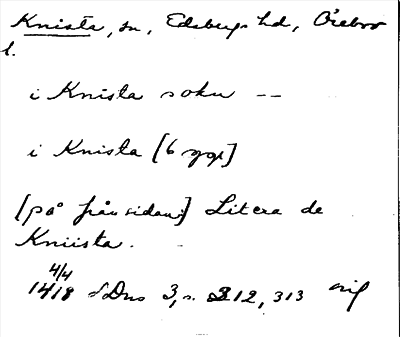 Knista, sn, Edsbergs hd, Örebro
l.
i Knista sokn --
i Knista [6 ggr]
[på frånsidan:] Litera de
Kniista.
4/4
1418 SDns 3, s. 312, 313 orig